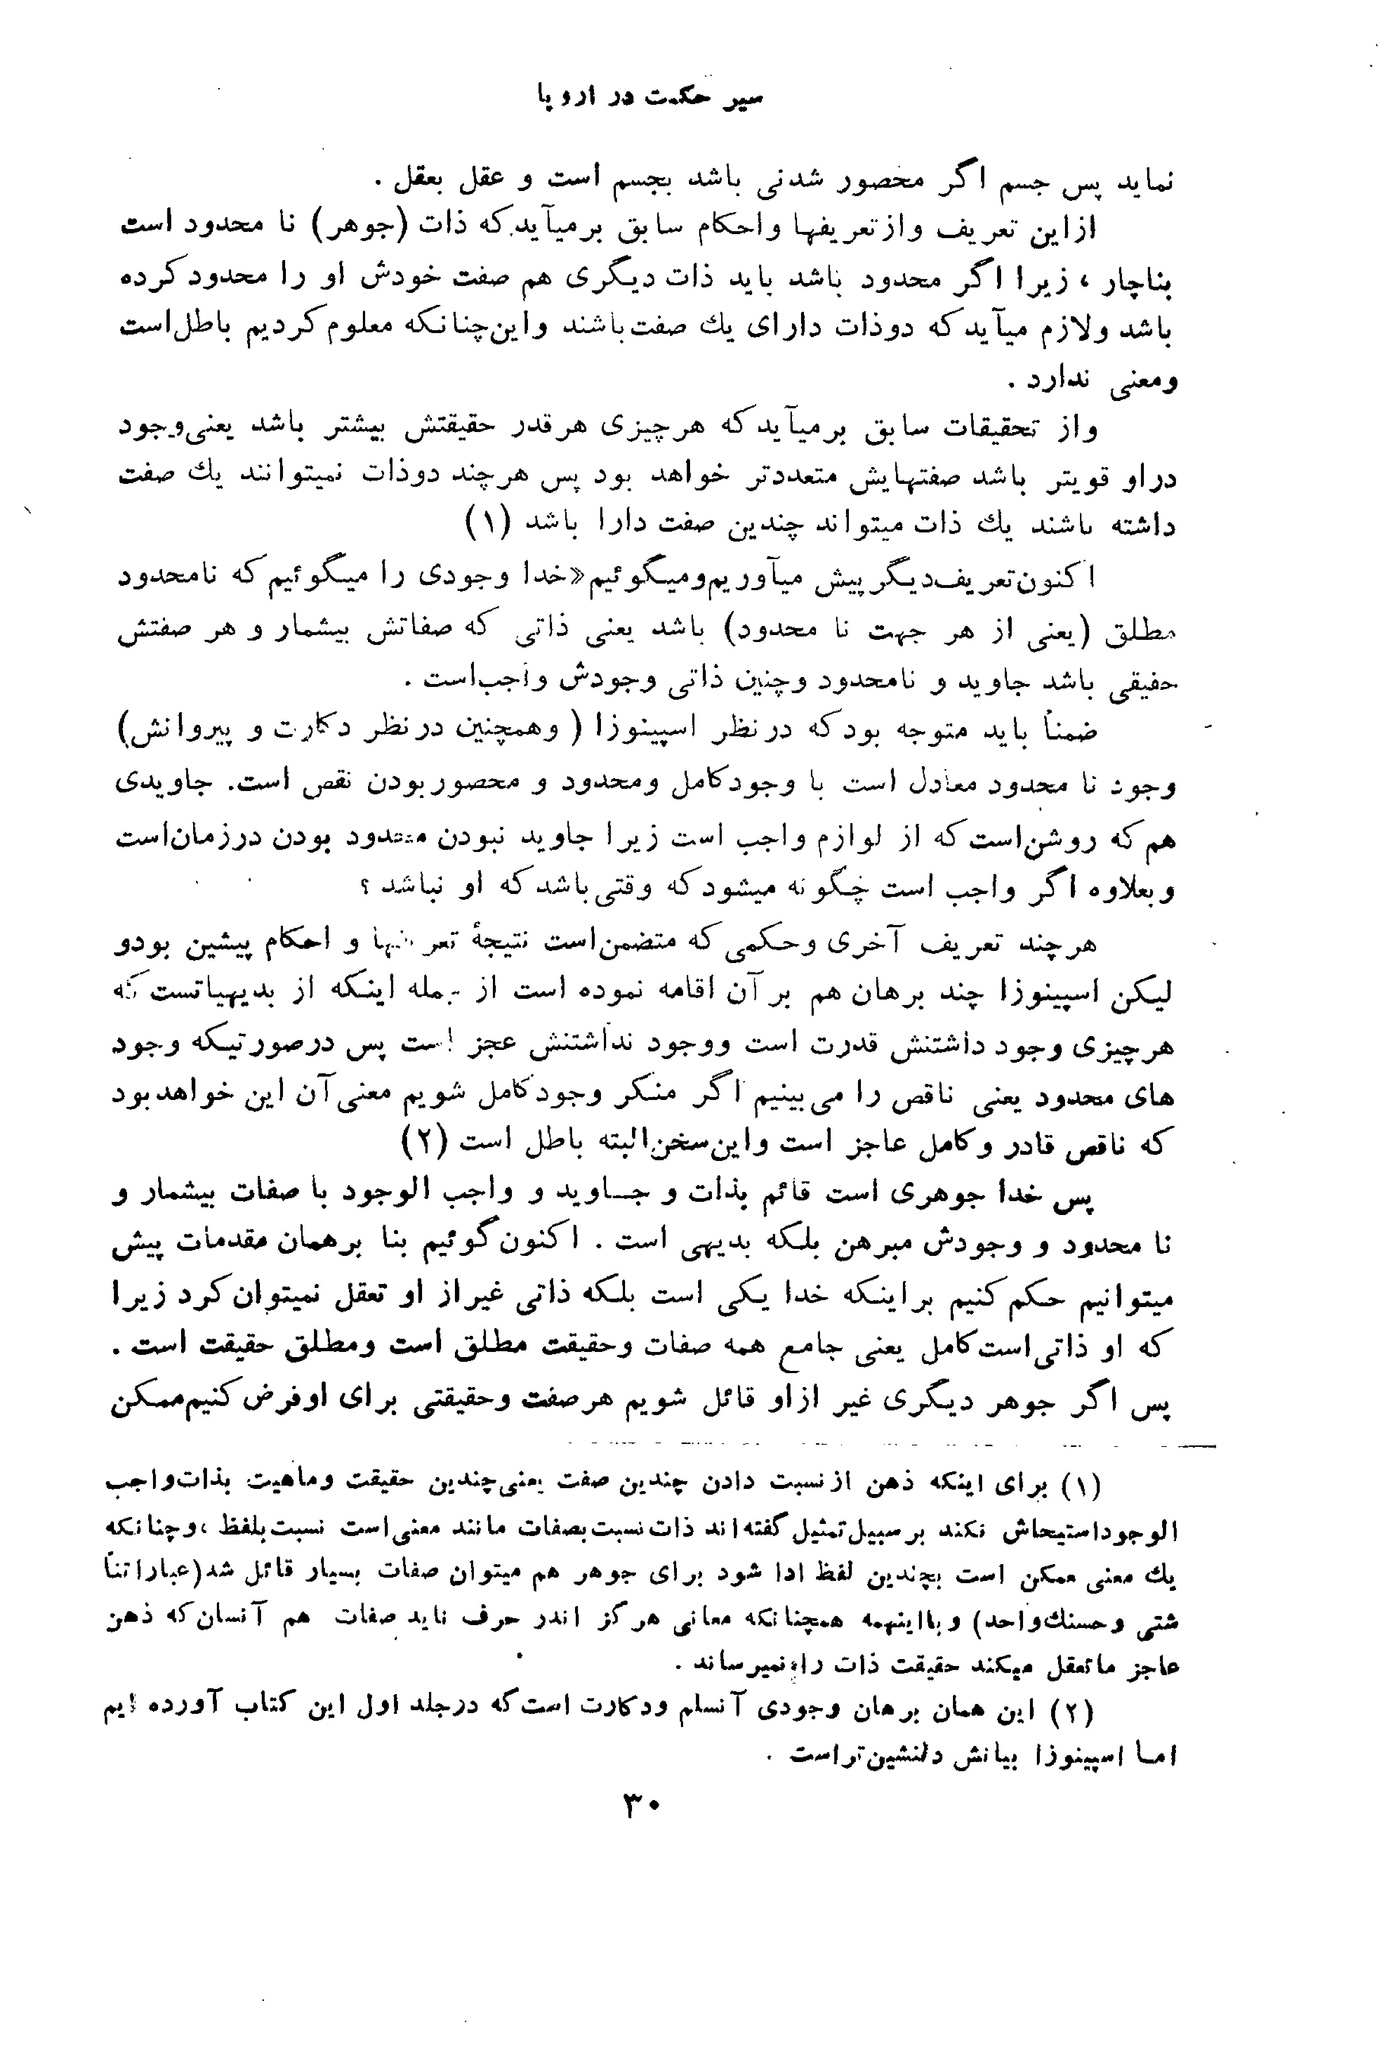 سیر حکمت در اروپا
نماید پس جسم اگر محصور شدنی باشد بجسم است و عقل بعقل .
ازاین تعریف وازتعریفها واحکام سابق برمیآید که ذات (جوهر) نا محدود است
بناچار ، زیرا اگر محدود باشد باید ذات دیگری هم صفت خودش او را محدود کرده
باشد ولازم میآید که دوذات دارای یك صفت باشند واین چنانکه معلوم کردیم باطل است
ومعنی ندارد .
واز تحقیقات سابق برمیآید که هرچیزی هرقدر حقیقتش بیشتر باشد یعنی وجود
دراو قویتر باشد صفتهایش متعددتر خواهد بود پس هرچند دوذات نمیتوانند یك صفت
داشته باشند یك ذات میتواند چندین صفت دارا باشد (۱)
اکنون تعریف دیگر پیش میآوریم ومیگوئیم «خدا وجودی را میگوئیم که نامحدود
مطلق (یعنی از هر جهت نا محدود) باشد یعنی ذاتی که صفاتش بیشمار و هر صفتش
حقیقی باشد جاوید و نامحدود وچنین ذاتی وجودش واجب است .
ضمناً باید متوجه بود که درنظر اسپینوزا ( وهمچنین درنظر دکارت و پیروانش)
وجود نا محدود معادل است با وجود کامل ومحدود و محصور بودن نقص است. جاویدی
هم که روشن است که از لوازم واجب است زیرا جاوید نبودن محدود بودن درزمان است
وبعلاوه اگر واجب است چگونه میشود که وقتی باشد که او نباشد ؟
هرچند تعریف آخری وحکمی که متضمن است نتیجهٔ تعریفها و احکام پیشین بودو
لیکن اسپینوزا چند برهان هم برآن اقامه نموده است از جمله اینکه از بدیهیاتست که
هرچیزی وجود داشتنش قدرت است ووجود نداشتنش عجز است پس درصورتیکه وجود
های محدود یعنی ناقص را می‌بینیم اگر منکر وجود کامل شویم معنی آن این خواهد بود
که ناقص قادر وکامل عاجز است واین سخن البته باطل است (۲)
پس خدا جوهری است قائم بذات و جــاوید و واجب الوجود با صفات بیشمار و
نا محدود و وجودش مبرهن بلکه بدیهی است . اکنون گوئیم بنا برهمان مقدمات پیش
میتوانیم حکم کنیم براینکه خدا یکی است بلکه ذاتی غیراز او تعقل نمیتوان کرد زیرا
که او ذاتی است کامل یعنی جامع همه صفات وحقیقت مطلق است ومطلق حقیقت است .
پس اگر جوهر دیگری غیر ازاو قائل شویم هرصفت وحقیقتی برای اوفرض کنیم ممکن
(۱) برای اینکه ذهن ازنسبت دادن چندین صفت یعنی چندین حقیقت وماهیت بذات واجب
الوجود استیحاش نکند برسبیل تمثیل گفته‌اند ذات نسبت بصفات مانند معنی است نسبت بلفظ ،وچنانکه
یك معنی ممکن است بچندین لفظ ادا شود برای جوهر هم میتوان صفات بسیار قائل شد(عباراتنا
شتی وحسنك واحد) وبااینهمه همچنانکه معانی هرگز اندر حرف ناید صفات هم آنسان که ذهن
عاجز ماتعقل میکند حقیقت ذات را نمیرساند .
(۲) این همان برهان وجودی آنسلم ودکارت است که درجلد اول این کتاب آورده ایم
امـا اسپینوزا بیانش دلنشین‌تراست .
۳۰